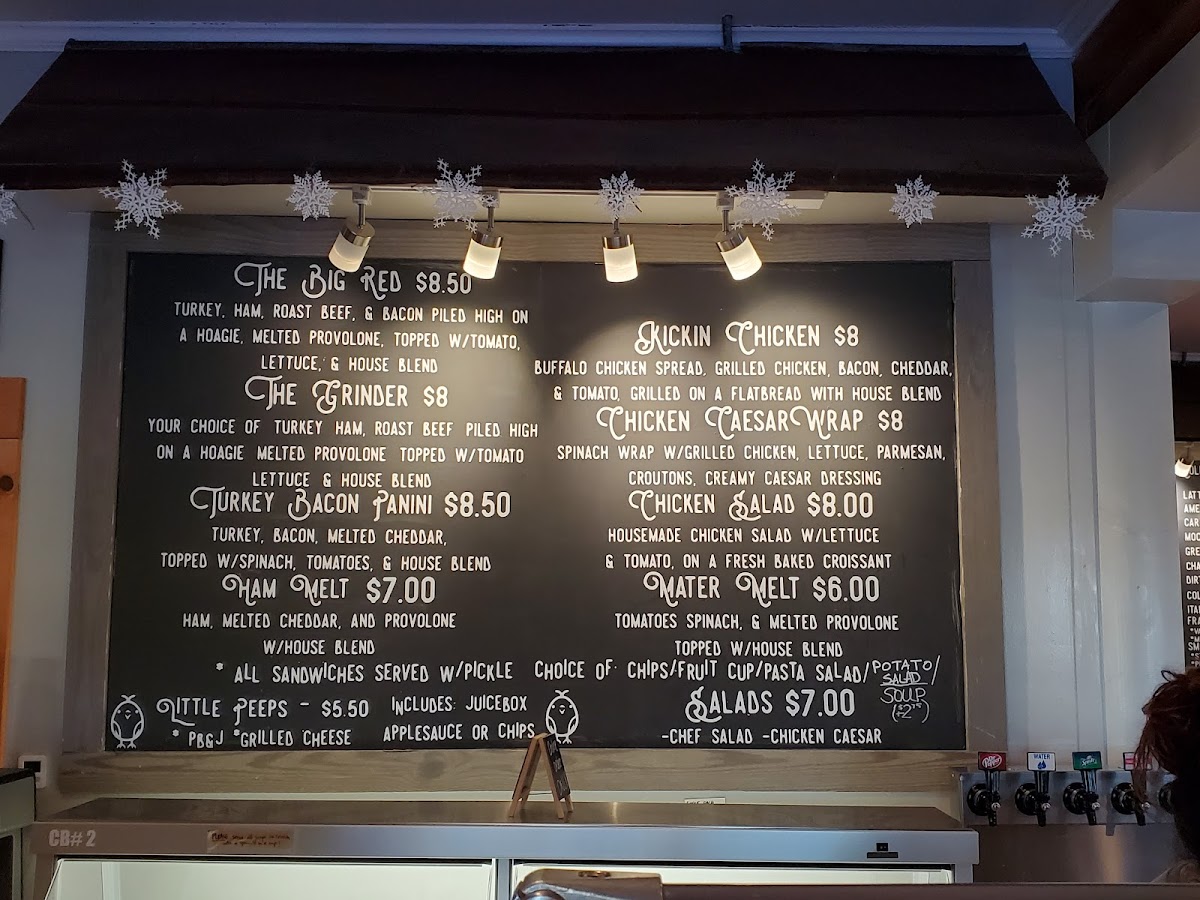 The Big Red $8.50
Turkey, Ham, Roast Beef, & Bacon piled high on
a hoagie, melted provolone, topped w/tomato,
lettuce, & house blend
The Grinder $8
Your choice of turkey ham, roast beef piled high
on a hoagie melted provolone topped w/tomato
lettuce & house blend
Turkey Bacon Panini $8.50
Turkey, bacon, melted cheddar,
topped w/spinach, tomatoes, & house blend
Ham Melt $7.00
Ham, melted cheddar, and provolone
w/house blend
Kickin Chicken $8
Buffalo chicken spread, grilled chicken, bacon, cheddar,
& tomato, grilled on a flatbread with house blend
Chicken Caesar Wrap $8
Spinach wrap w/grilled chicken, lettuce, parmesan,
croutons, creamy caesar dressing
Chicken Salad $8.00
Housemade chicken salad w/lettuce
& tomato, on a fresh baked croissant
Mater Melt $6.00
Tomatoes spinach, & melted provolone
topped w/house blend
* All sandwiches served w/pickle choice of chips/fruit cup/pasta salad/POTATO SALAD/
SOUP
(+$2.75)
Little Peeps - $5.50
* PB&J *Grilled Cheese
Includes: Juicebox
Applesauce or chips
Salads $7.00
-Chef Salad -Chicken Caesar
CB# 2
Dr Pepper
WATER